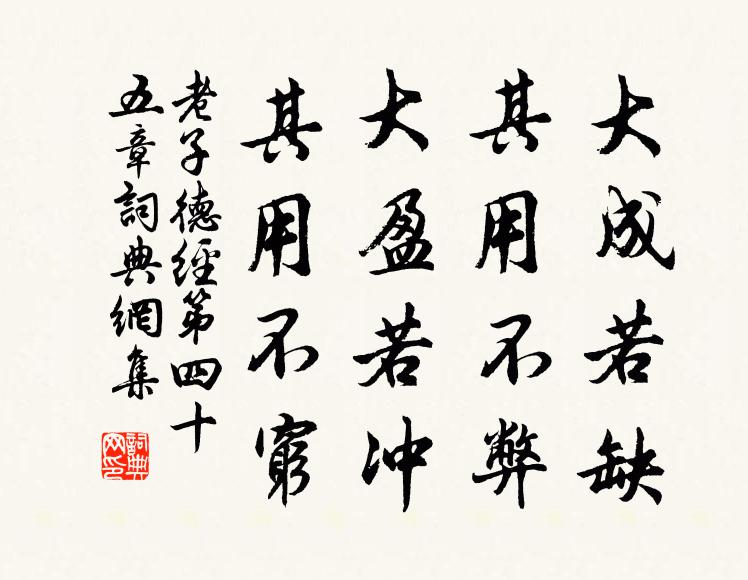 大成若缺
其用不弊
大盈若冲
其用不窮
老子德經第四十
五章詞典網集
詞典網印